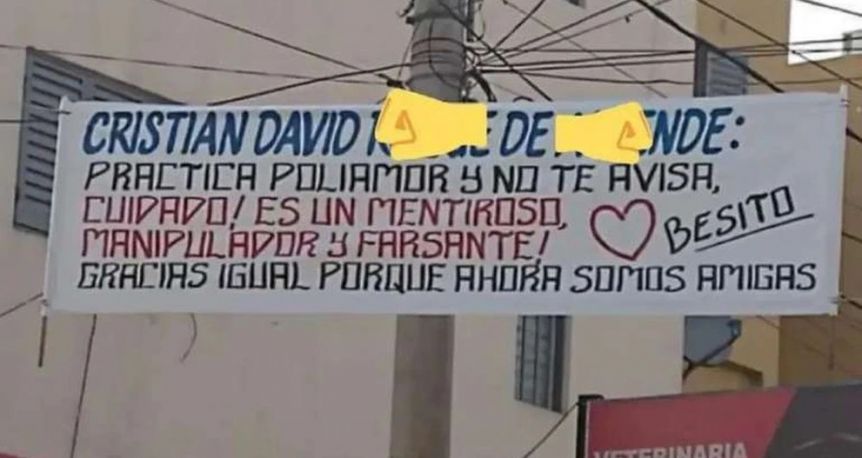 CRISTIAN DAVID DE
PRACTICA POLIAMOR Y NO TE AVISA,
CUIDADO! ES UN MENTIROSO,
MANIPULADOR Y FARSANTE!
BESITO
GRACIAS IGUAL PORQUE AHORA SOMOS AMIGAS
VETERINARIA